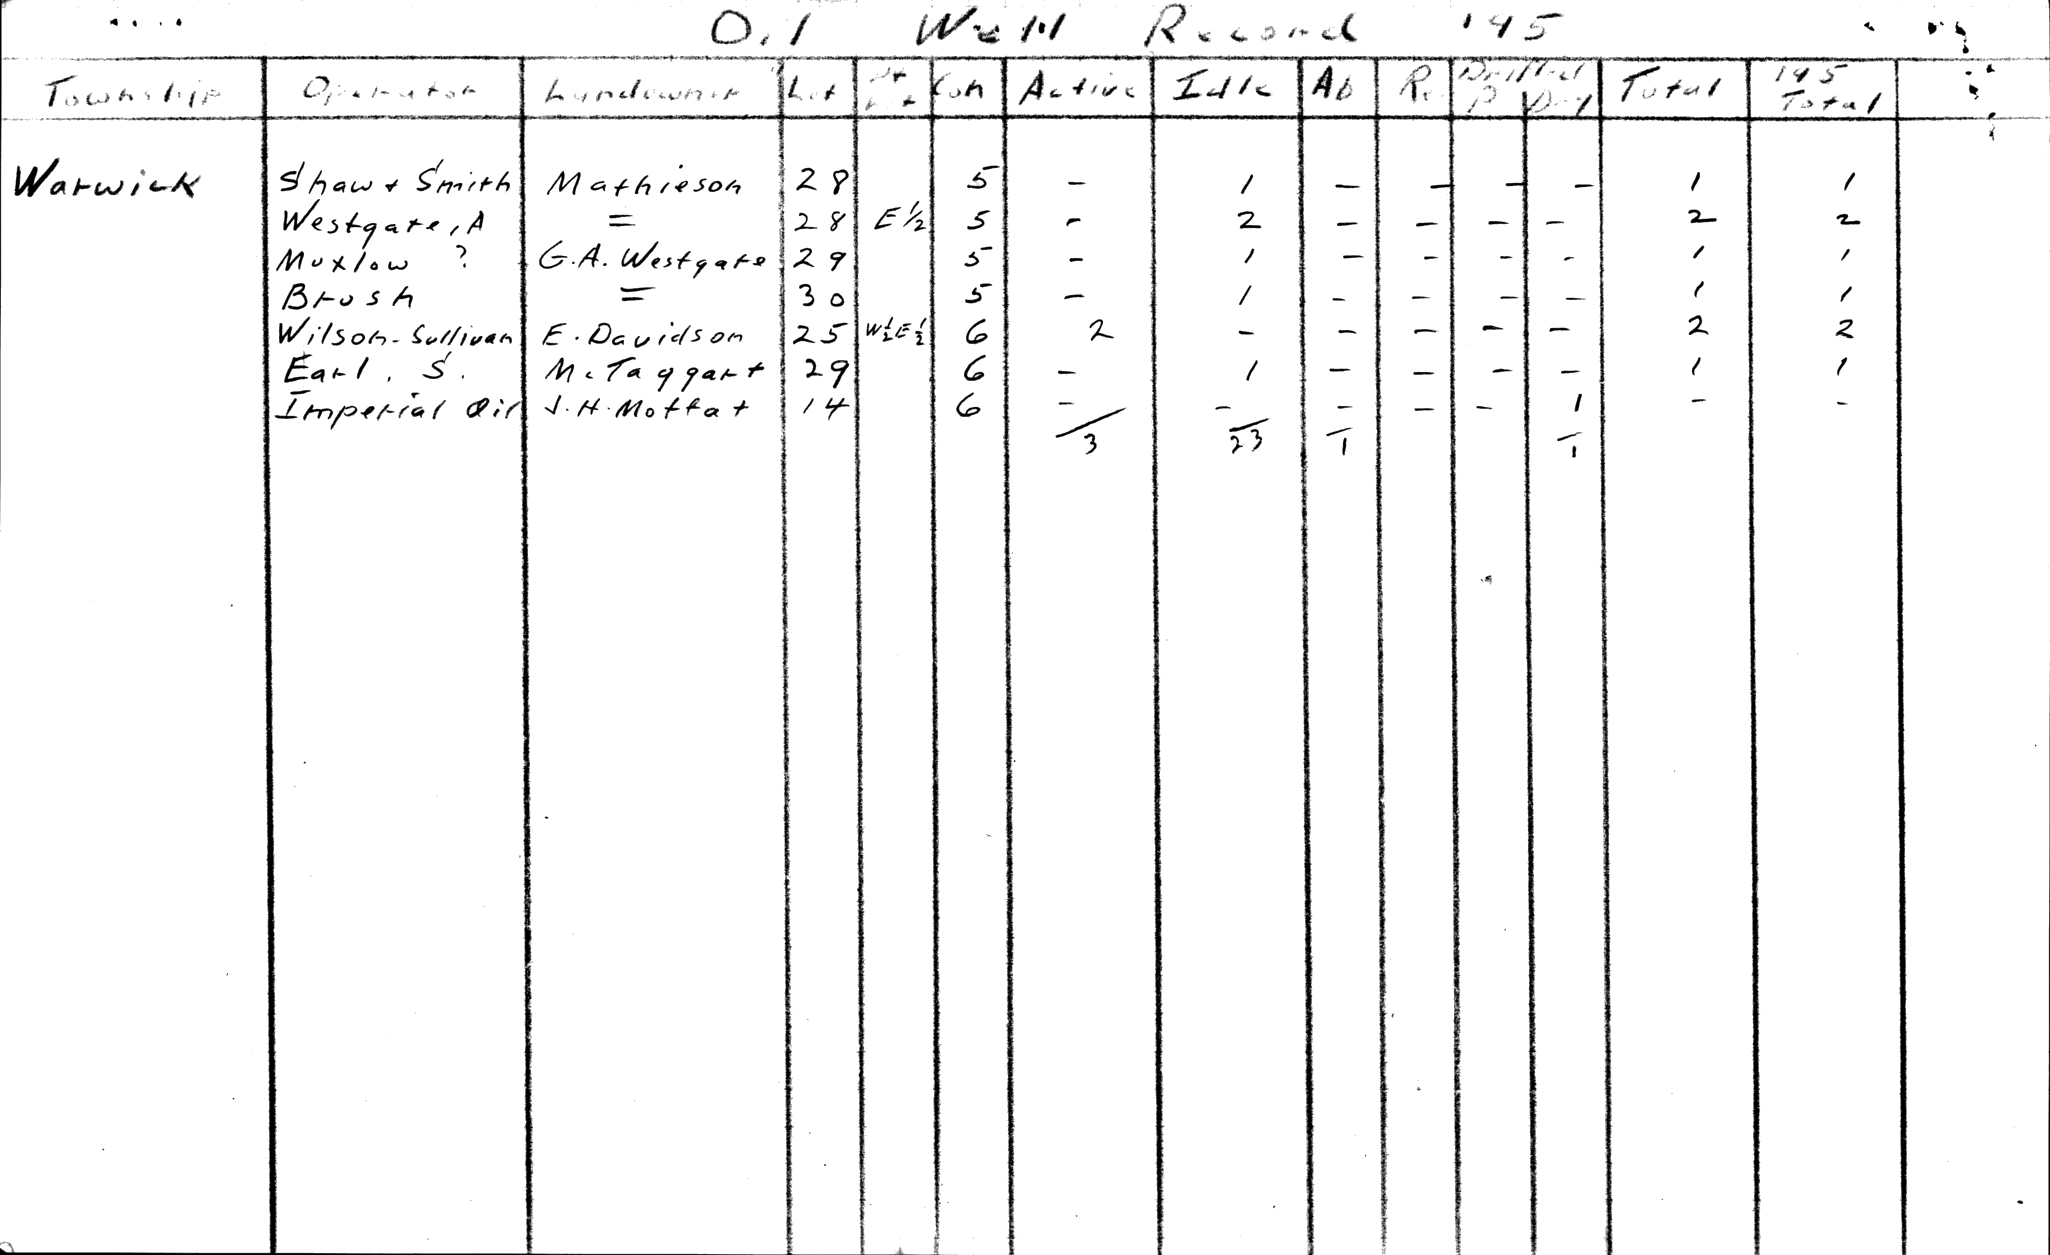 Oil Well Record '45
Township Operator Landowner Lot Con Active Idle Ab Re Drilled P Dry Total '45 Total
Warwick Shaw + Smith Mathieson 28 5 - 1 - - - - 1 1
Westgate, A = 28 E 1/2 5 - 2 - - - - 2 2
Muxlow ? G.A. Westgate 29 5 - 1 - - - - 1 1
Brush = 30 5 - 1 - - - - 1 1
Wilson-Sullivan E. Davidson 25 W 1/2 E 1/2 6 2 - - - - - 2 2
Earl, S. McTaggart 29 6 - 1 - - - - 1 1
Imperial Oil J.H. Moffat 14 6 - - - - - 1 - -
3 23 1 1